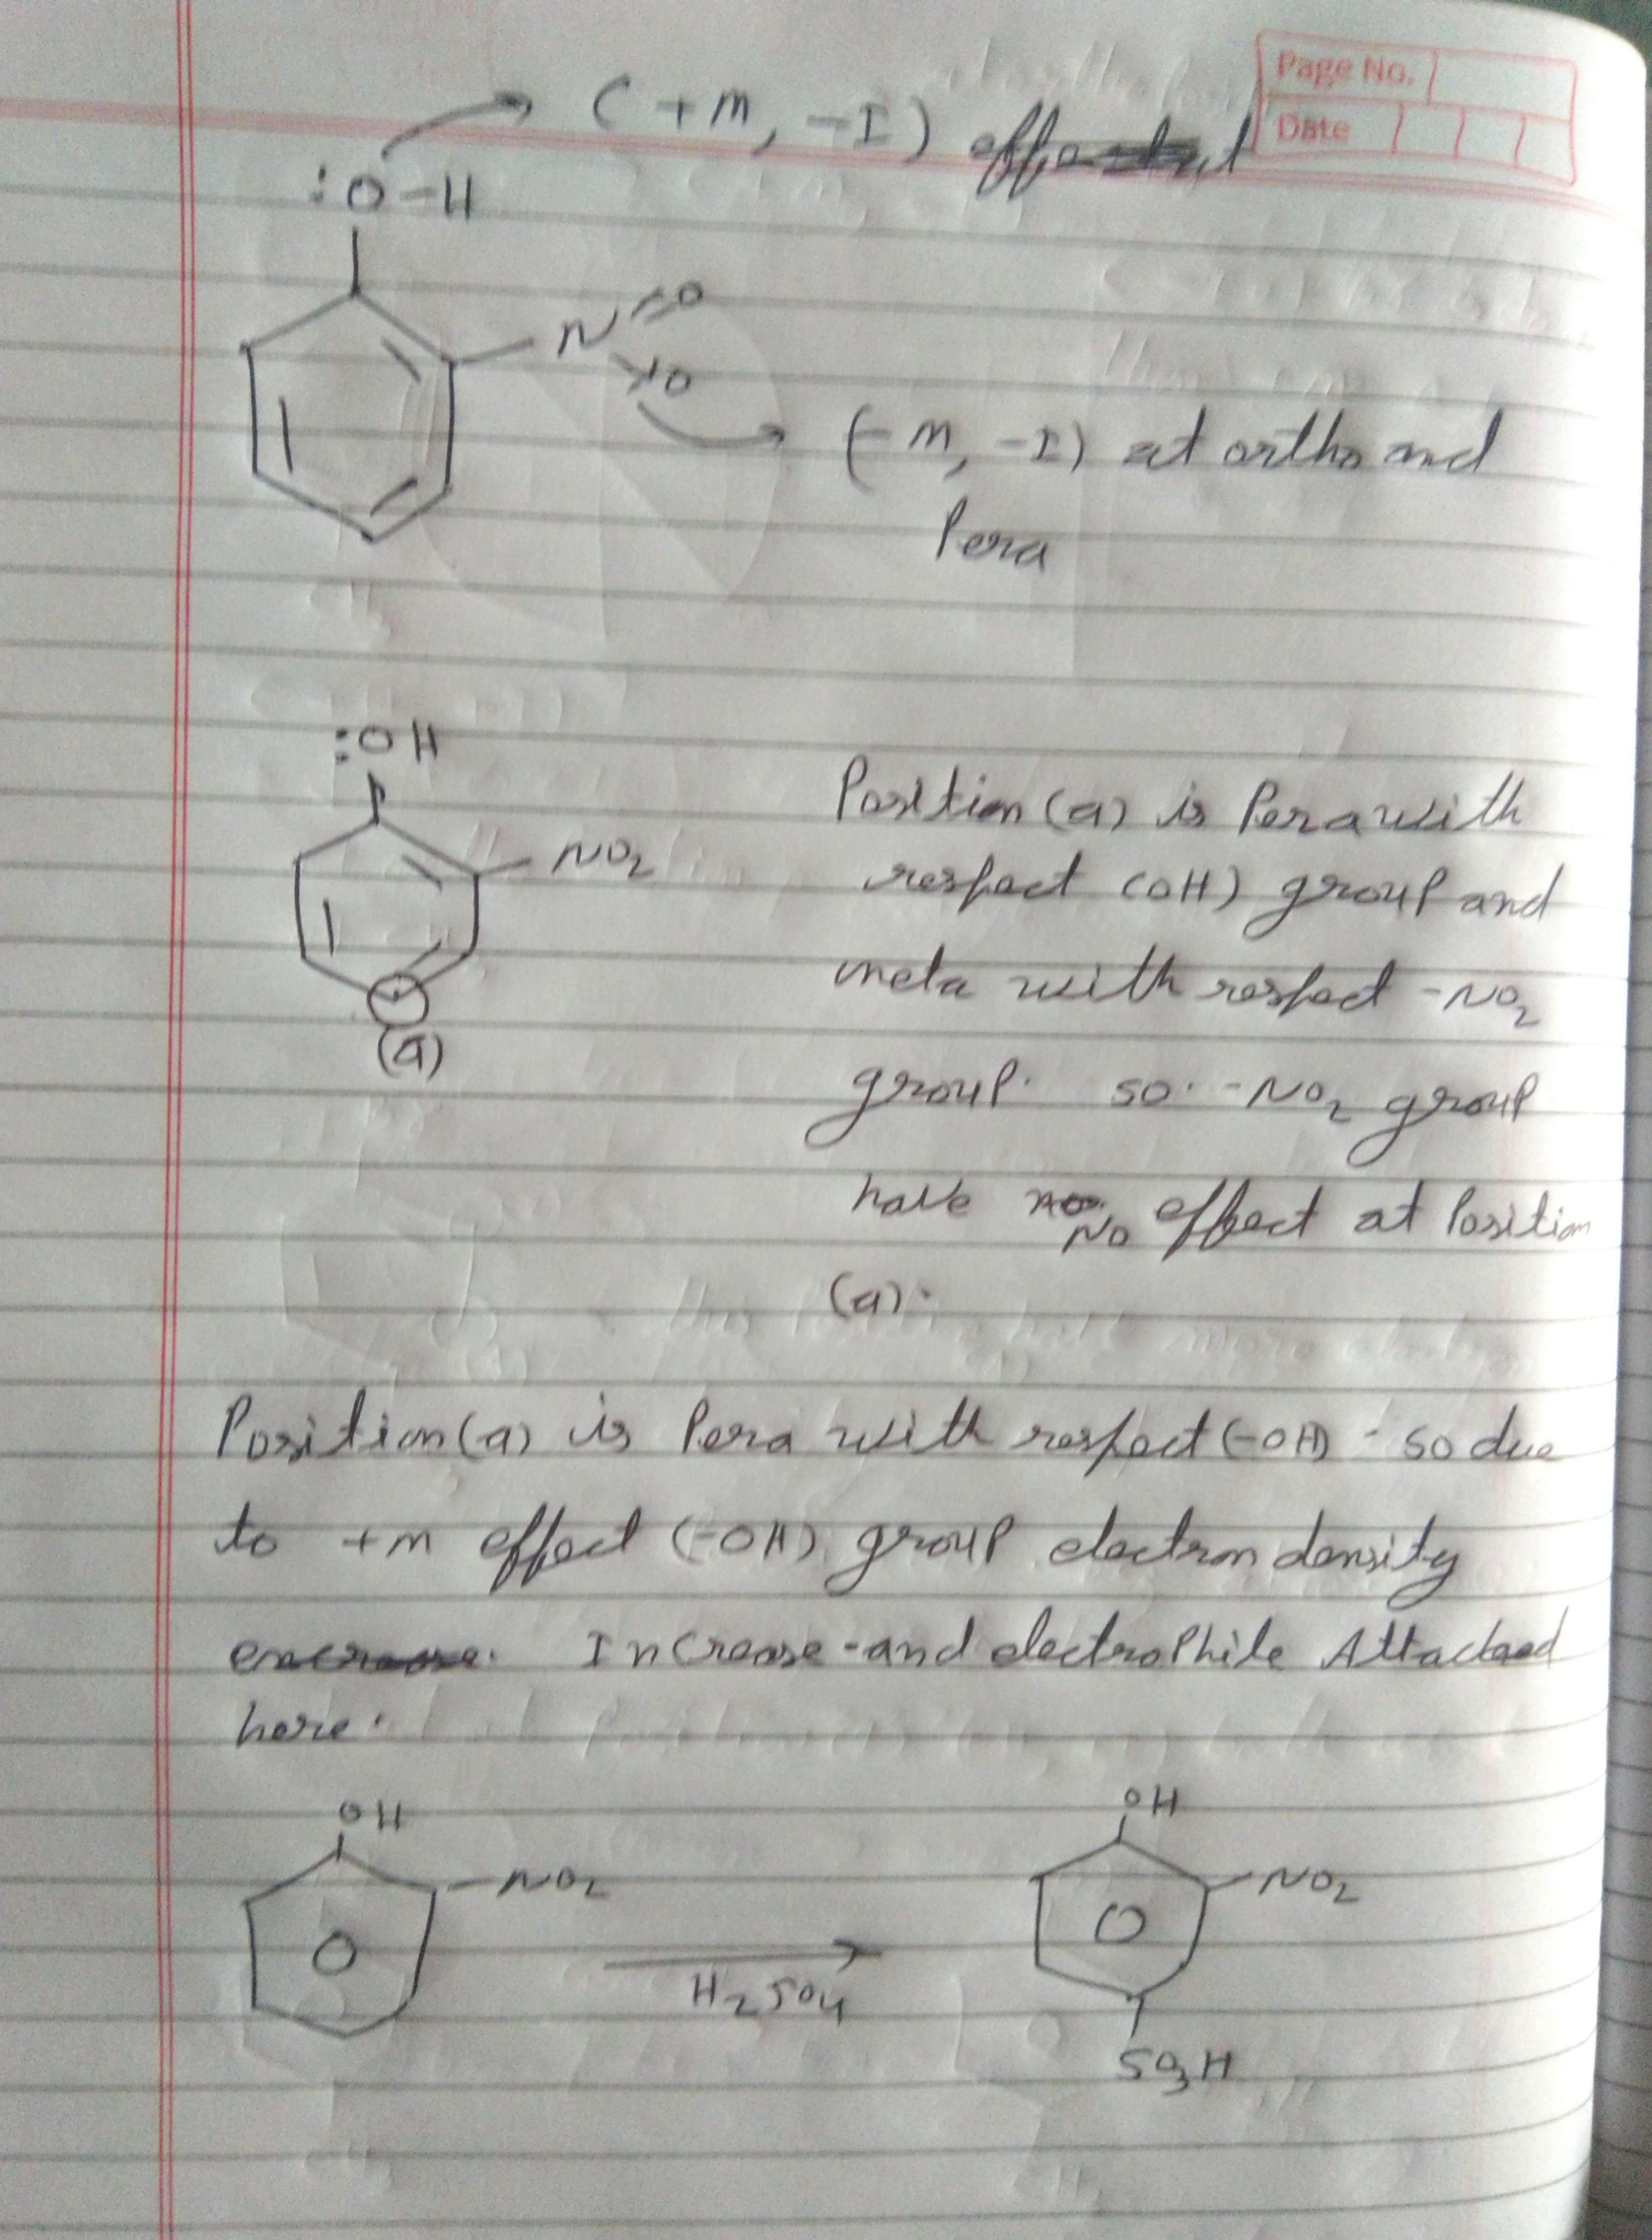 Page No.
Date
(+M, -I) effect
:O-H
N
O
O
(-M, -I) at ortho and
Pera
:OH
NO2
(a)
Position (a) is Pera with
respect (OH) group and
meta with respect -NO2
group. so. -NO2 group
have No effect at Position
(a).
Position (a) is Pera with respect (-OH) - so due
to +m effect (-OH) group electron density
Increase - and electrophile Attacked
here.
OH
-NO2
H2SO4
OH
-NO2
SO3H